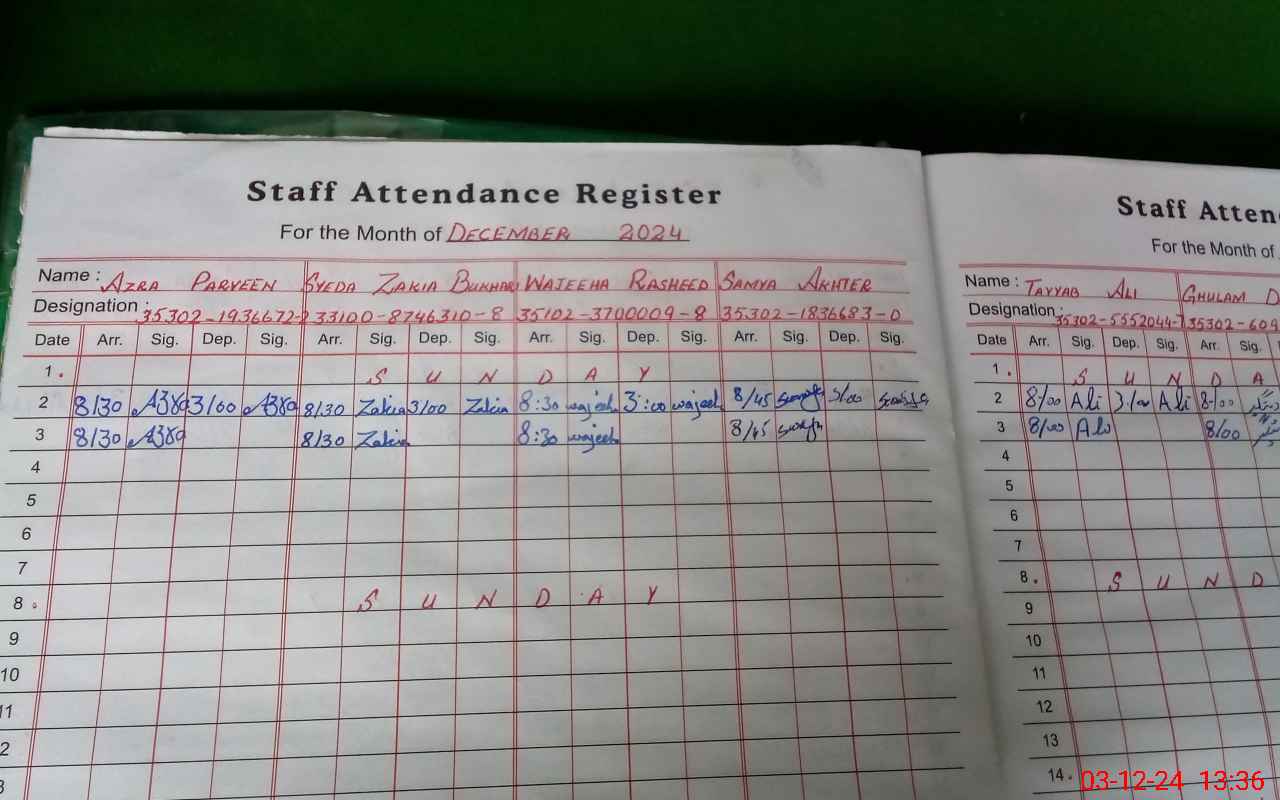 Staff Attendance Register
For the Month of DECEMBER 2024
Name : AZRA PARVEEN SYEDA ZAKIA BUKHARI WAJEEHA RASHEED SAMYA AKHTER
Designation : 35302-1936672- 33100-8746310-8 35102-3700009-8 35302-1836683-0
Date Arr. Sig. Dep. Sig. Arr. Sig. Dep. Sig. Arr. Sig. Dep. Sig. Arr. Sig. Dep. Sig.
1. S U N D A Y
2 8/30 3/00 8/30 Zakia 3/00 Zakia 8:30 wajeeh 3:00 wajeeh 8/45 3/00
3 8/30 8/30 Zakia 8:30 wajeeh 8/45
4
5
6
7
8. S U N D A Y
9
10
11
2
3
Staff Atten
For the Month of
Name : TAYYAB ALI GHULAM D
Designation : 35302-5552044-7 35302-609
Date Arr. Sig. Dep. Sig. Arr. Sig.
1. S U N D A
2 8/00 Ali 3/00 Ali 8/00
3 8/00 Ali 8/00
4
5
6
7
8. S U N D
9
10
11
12
13
14.
03-12-24 13:36